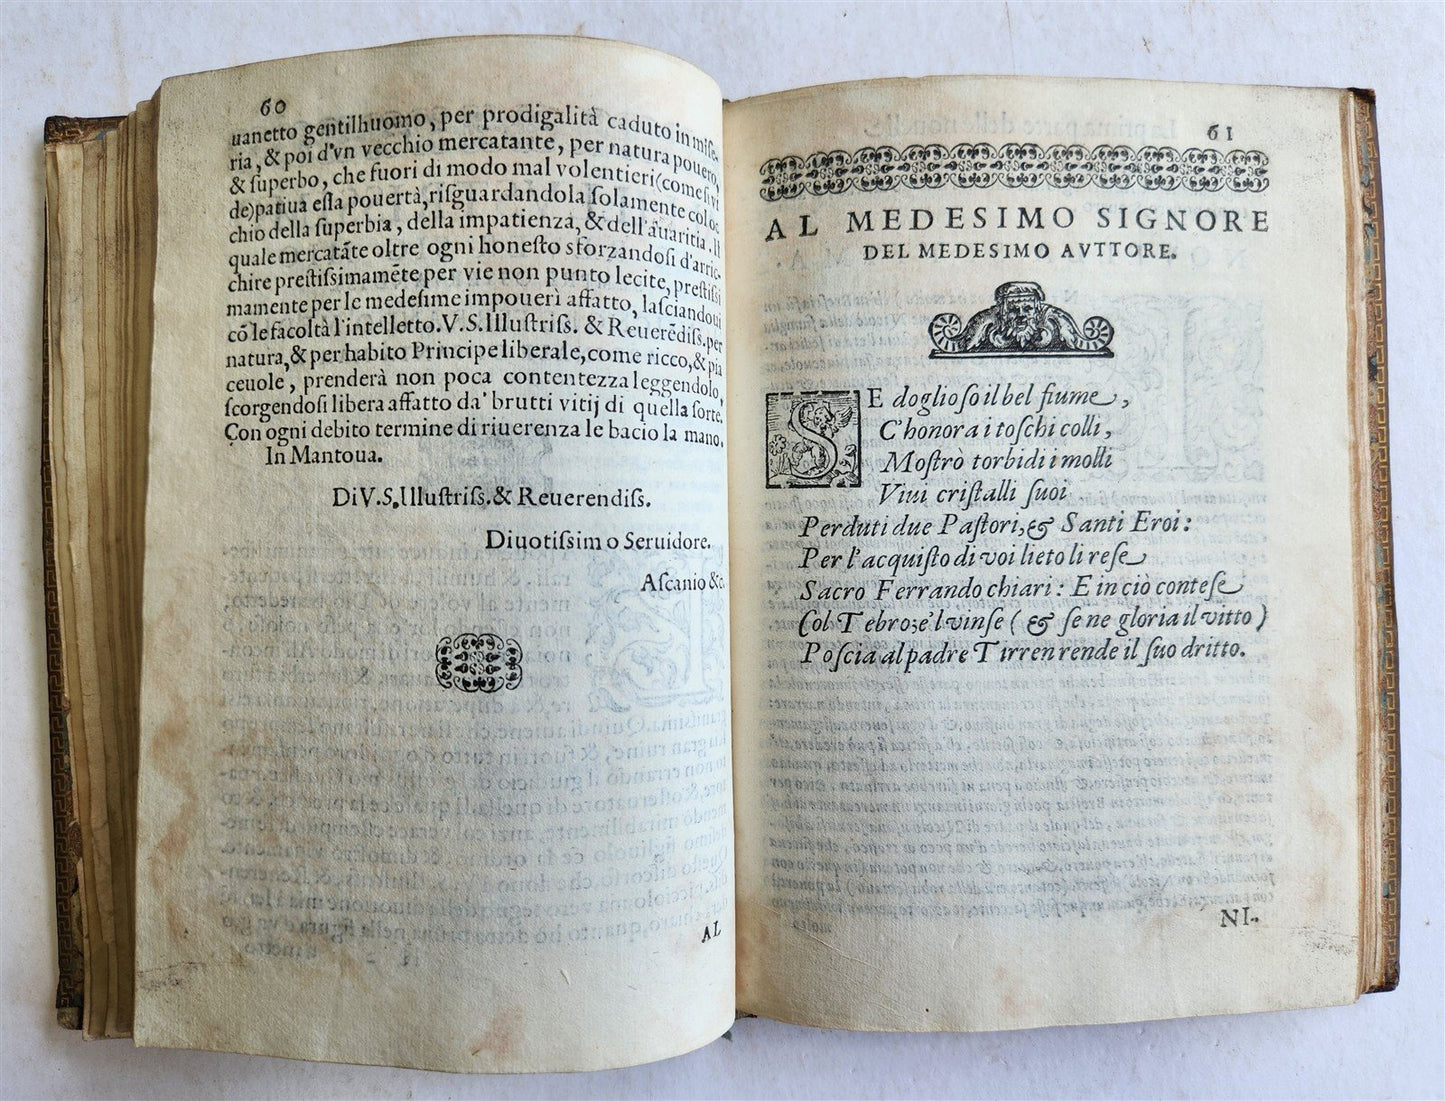 60
uanetto gentilhuomo, per prodigalità caduto in miſe-
ria, & poi d'vn vecchio mercatante, per natura pouero,
& ſuperbo, che fuori di modo mal volentieri (come ſi vi
de) patiua eſſa pouertà, riſguardandola ſolamente col oc
chio della ſuperbia, della impatienza, & dell'auaritia. Il
quale mercatāte oltre ogni honeſto sforzandoſi d'arric-
chire preſtiſſimamēte per vie non punto lecite, preſtiſſi
mamente per le medeſime impouerì affatto, laſciandoui
cō le facoltà l'intelletto. V. S. Illuſtriſſ. & Reuerēdiſſ. per
natura, & per habito Principe liberale, come ricco, & pia
ceuole, prenderà non poca contentezza leggendolo,
ſcorgendoſi libera affatto da' brutti vitij di quella ſorte.
Con ogni debito termine di riuerenza le bacio la mano.
In Mantoua.
Di V. S. Illuſtriſſ. & Reuerendiſſ.
Diuotiſſimo Seruidore.
Aſcanio &c.
AL
61
AL MEDESIMO SIGNORE
DEL MEDESIMO AVTTORE.
SE doglioſo il bel fiume,
C'honora i toſchi colli,
Moſtrò torbidi i molli
Viui criſtalli ſuoi
Perduti due Paſtori, & Santi Eroi:
Per l'acquiſto di voi lieto li reſe
Sacro Ferrando chiari: E in ciò conteſe
Col Tebro; e'l vinſe (& ſe ne gloria il vitto)
Poſcia al padre Tirren rende il ſuo dritto.
NI-